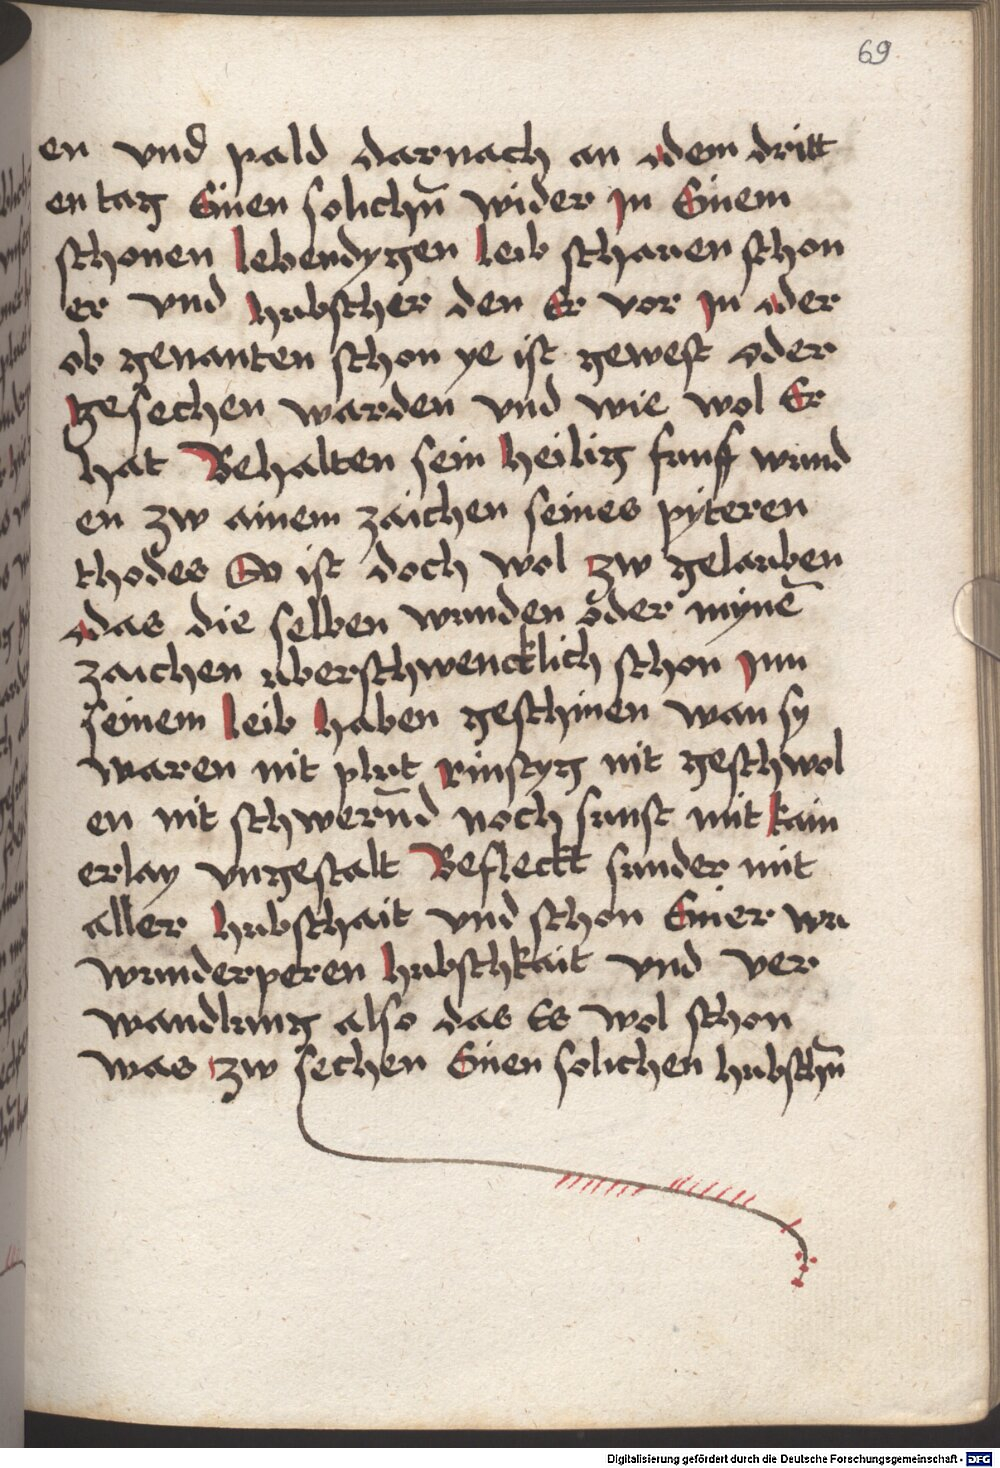 69
en vnd pald darnach an dem dritt
en tag Einen solichn̄ wider Jn Einem
schonen lebendygen leib scharen schon
er vnd hubscher den Er vor Jn der
ob genanten schon ye ist gewest oder
gesechen warden vnd wie wol Er
hat Behalten sein heilig funff wund
en zw ainem zaichen seines pyteren
thodes So ist doch wol zw gelauben
das die selben wunden oder mynē
zaichen uberschwencklich schon Jnn
seinem leib haben geschinen wan sy
waren nit plut rinstyg nit geschwol
en nit schwern̄d noch sunst mit kain
erlay vngestalt Befleckt sunder mit
aller hubschait vnd schon Einer wu
wunderperen hubschkait vnd ver
wandlung also das Es wol schon
was zw sechen Einen solichen hubschn̄
Digitalisierung gefördert durch die Deutsche Forschungsgemeinschaft - DFG